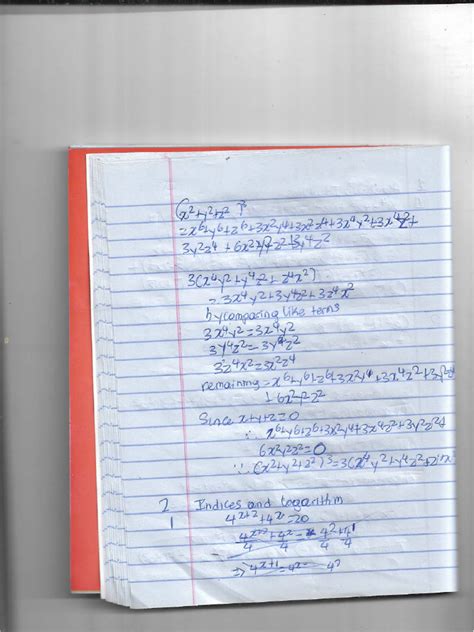 (x²+y²+z²)³
=x⁶+y⁶+z⁶+3x²y⁴+3x²z⁴+3x⁴y²+3x⁴z²+
3y²z⁴+6x²y²z²+3y⁴z²
3(x⁴y²+y⁴z²+z⁴x²)
=3x⁴y²+3y⁴z²+3z⁴x²
by comparing like terms
3x⁴y²=3x⁴y²
3y⁴z²=3y⁴z²
3z⁴x²=3x²z⁴
remaining=x⁶+y⁶+z⁶+3x²y⁴+3x⁴z²+3y²z⁴
+6x²y²z²
Since x+y+z=0
∴ x⁶+y⁶+z⁶+3x²y⁴+3x⁴z²+3y²z⁴
6x²y²z²=0
∵ (x²+y²+z²)³=3(x⁴y²+y⁴z²+z⁴x²
2 Indices and logarithm
1 4ˣ⁺²+4ˣ=20
4² 4¹
4 4 4 4
⇒ 4ˣ⁺¹=4ˣ